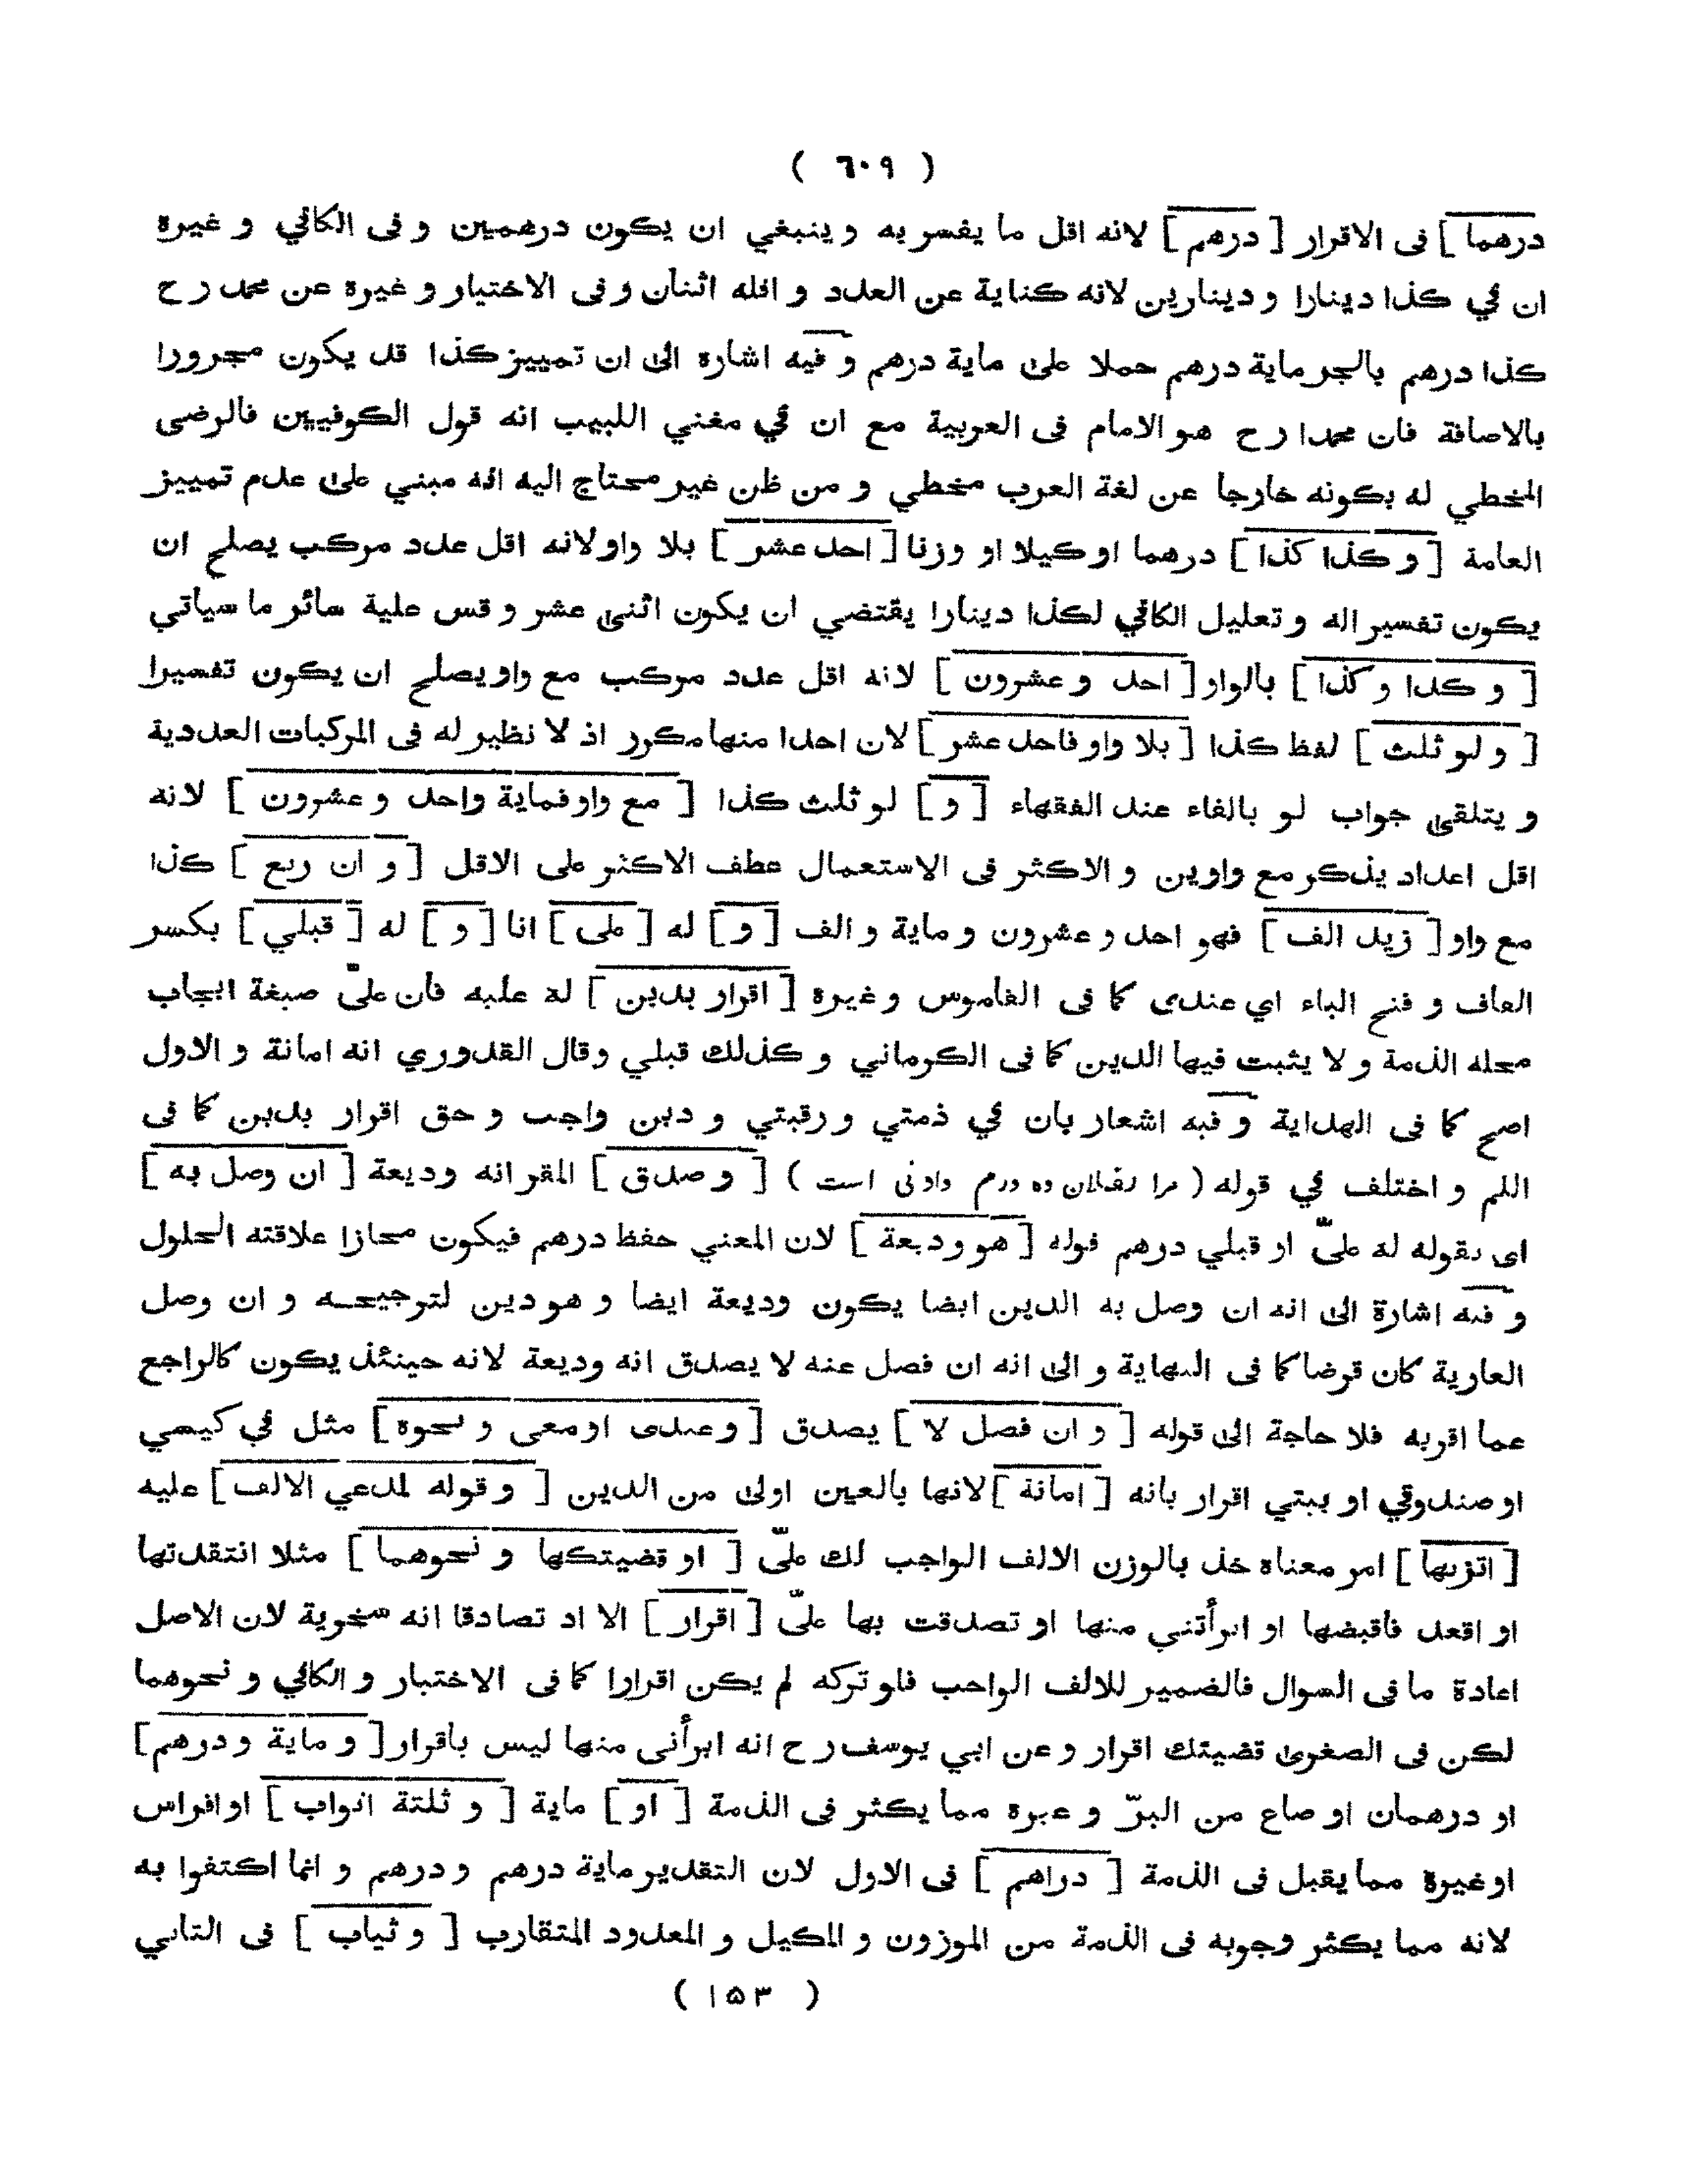 ( ٦٠٩ )
درهما ] فى الاقرار [ درهم ] لانه اقل ما يفسر به و ينبغي ان يكون درهمين و فى الكافي و غيره
ان في كذا دينارا و دينارين لانه كناية عن العدد و اقله اثنان و فى الاختيار و غيره عن محمد ر ح
كذا درهم بالجر ماية درهم حملا على ماية درهم و فيه اشارة الى ان تمييز كذا قد يكون مجرورا
بالاضافة فان محمدا ر ح هو الامام فى العربية مع ان في مغني اللبيب انه قول الكوفيين فالرضى
المخطي له بكونه خارجا عن لغة العرب مخطي و من ظن غير محتاج اليه انه مبني على عدم تمييز
العامة [ و كذا كذا ] درهما او كيلا او وزنا [ احد عشر ] بلا واو لانه اقل عدد مركب يصلح ان
يكون تفسيرا له و تعليل الكافي لكذا دينارا يقتضي ان يكون اثنى عشر و قس عليه سائر ما سياتي
[ و كذا و كذا ] بالواو [ احد و عشرون ] لانه اقل عدد مركب مع واو يصلح ان يكون تفسيرا
[ و لو ثلث ] لفظ كذا [ بلا واو فاحد عشر ] لان احدا منها مكرر اذ لا نظير له فى المركبات العددية
و يتلقى جواب لو بالفاء عند الفقهاء [ و ] لو ثلث كذا [ مع واو فماية واحد و عشرون ] لانه
اقل اعداد يذكر مع واوين و الاكثر فى الاستعمال عطف الاكثر على الاقل [ و ان ربع ] كذا
مع واو [ زيد الف ] فهو احد و عشرون و ماية و الف [ و ] له [ على ] انا [ و ] له [ قبلي ] بكسر
القاف و فتح الباء اي عندى كما فى القاموس و غيره [ اقرار بدين ] له عليه فان علىّ صيغة ايجاب
محله الذمة و لا يثبت فيها الدين كما فى الكرماني و كذلك قبلي و قال القدوري انه امانة و الاول
اصح كما فى الهداية و فيه اشعار بان في ذمتي و رقبتي و دين واجب و حق اقرار بدين كما فى
اللم و اختلف في قوله ( مرا بفلان ده درم دادنى است ) [ و صدق ] المقر انه وديعة [ ان وصل به ]
اى بقوله له علىّ او قبلي درهم قوله [ هو وديعة ] لان المعني حفظ درهم فيكون مجازا علاقته الحلول
و فيه اشارة الى انه ان وصل به الدين ايضا يكون وديعة ايضا و هو دين لترجيحه و ان وصل
العارية كان قرضا كما فى النهاية و الى انه ان فصل عنه لا يصدق انه وديعة لانه حينئذ يكون كالراجع
عما اقر به فلا حاجة الى قوله [ و ان فصل لا ] يصدق [ و عندى او معى و نحوه ] مثل في كيسي
او صندوقي او بيتي اقرار بانه [ امانة ] لانها بالعين اولى من الدين [ و قوله لمدعي الالف ] عليه
[ اتزنها ] امر معناه خذ بالوزن الالف الواجب لك علىّ [ او قضيتكها و نحوهما ] مثلا انتقدتها
او اقعد فاقبضها او ابرأتني منها او تصدقت بها علىّ [ اقرار ] الا اد تصادقا انه سخرية لان الاصل
اعادة ما فى السوال فالضمير للالف الواجب فلو تركه لم يكن اقرارا كما فى الاختيار و الكافي و نحوهما
لكن فى الصغرى قضيتك اقرار و عن ابي يوسف ر ح انه ابرأنى منها ليس باقرار [ و ماية و درهم ]
او درهمان او صاع من البرّ و غيره مما يكثر فى الذمة [ او ] ماية [ و ثلثة اثواب ] او افراس
او غيره مما يقبل فى الذمة [ دراهم ] فى الاول لان التقدير ماية درهم و درهم و انما اكتفوا به
لانه مما يكثر وجوبه فى الذمة من الموزون و المكيل و المعدود المتقارب [ و ثياب ] فى الثاني
( ١٥٣ )